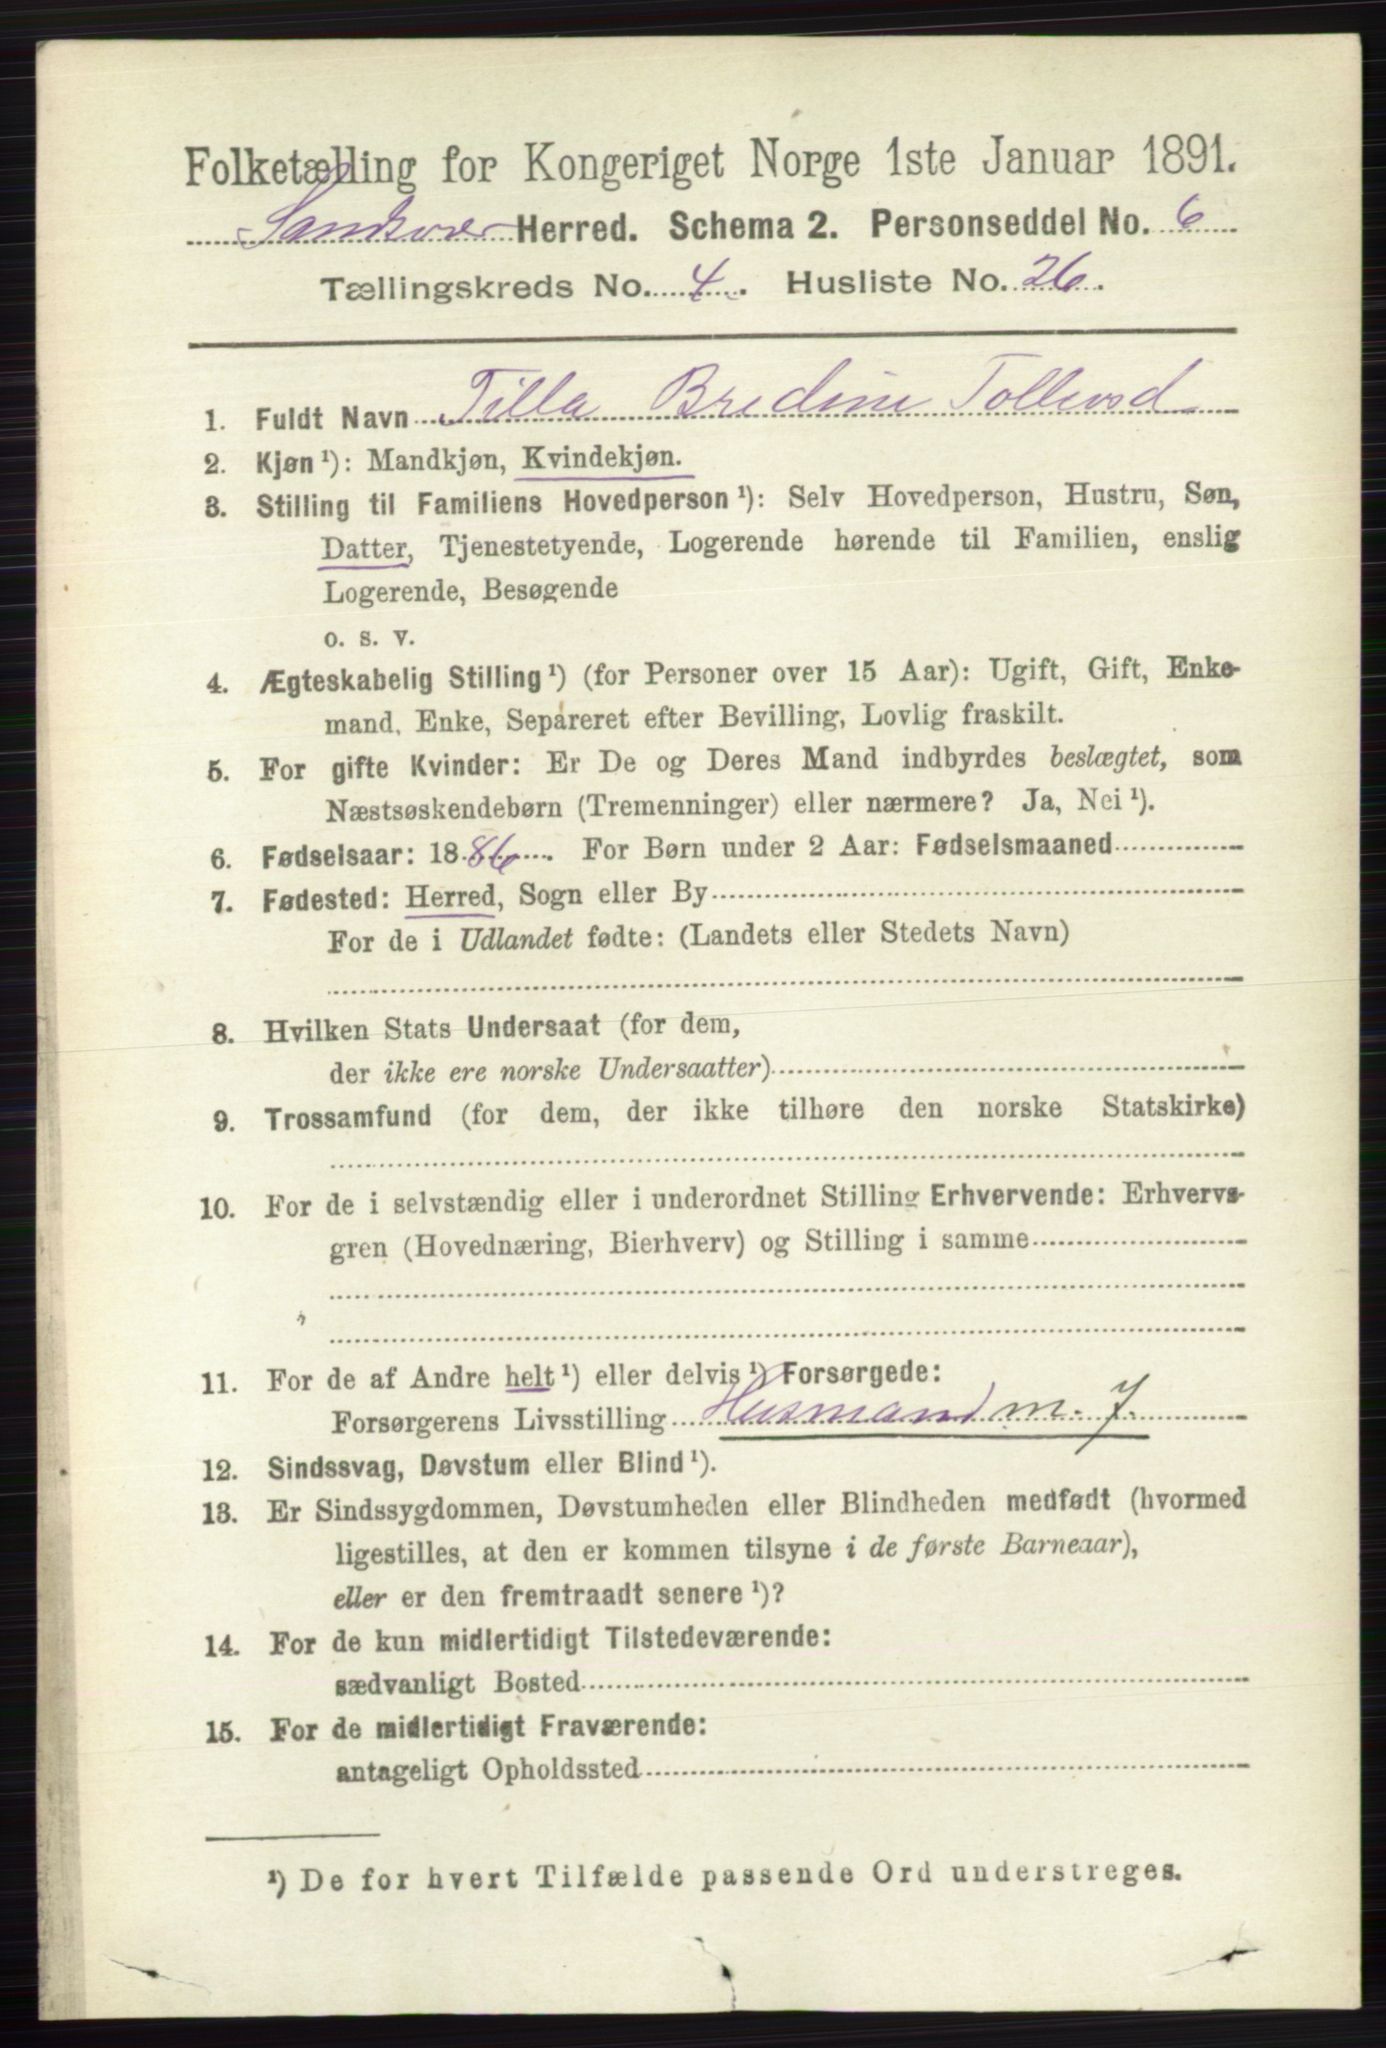 Folketælling for Kongeriget Norge 1ste Januar 1891.
Sandsvær Herred. Schema 2. Personseddel No. 6
Tællingskreds No. 4. Husliste No. 26.
1. Fuldt Navn Tilla Bredine Tollevsd
2. Kjøn ¹): Mandkjøn, Kvindekjøn.
3. Stilling til Familiens Hovedperson ¹): Selv Hovedperson, Hustru, Søn,
Datter, Tjenestetyende, Logerende hørende til Familien, enslig
Logerende, Besøgende
o. s. v.
4. Ægteskabelig Stilling ¹) (for Personer over 15 Aar): Ugift, Gift, Enke-
mand, Enke, Separeret efter Bevilling, Lovlig fraskilt.
5. For gifte Kvinder: Er De og Deres Mand indbyrdes beslægtet, som
Næstsøskendebørn (Tremenninger) eller nærmere? Ja, Nei ¹).
6. Fødselsaar: 1886. For Børn under 2 Aar: Fødselsmaaned
7. Fødested: Herred, Sogn eller By
For de i Udlandet fødte: (Landets eller Stedets Navn)
8. Hvilken Stats Undersaat (for dem,
der ikke ere norske Undersaatter)
9. Trossamfund (for dem, der ikke tilhøre den norske Statskirke)
10. For de i selvstændig eller i underordnet Stilling Erhvervende: Erhvervs-
gren (Hovednæring, Bierhverv) og Stilling i samme
11. For de af Andre helt ¹) eller delvis ¹) Forsørgede:
Forsørgerens Livsstilling Husmand m. J.
12. Sindssvag, Døvstum eller Blind ¹).
13. Er Sindssygdommen, Døvstumheden eller Blindheden medfødt (hvormed
ligestilles, at den er kommen tilsyne i de første Barneaar),
eller er den fremtraadt senere ¹)?
14. For de kun midlertidigt Tilstedeværende:
sædvanligt Bosted
15. For de midlertidigt Fraværende:
antageligt Opholdssted
¹) De for hvert Tilfælde passende Ord understreges.